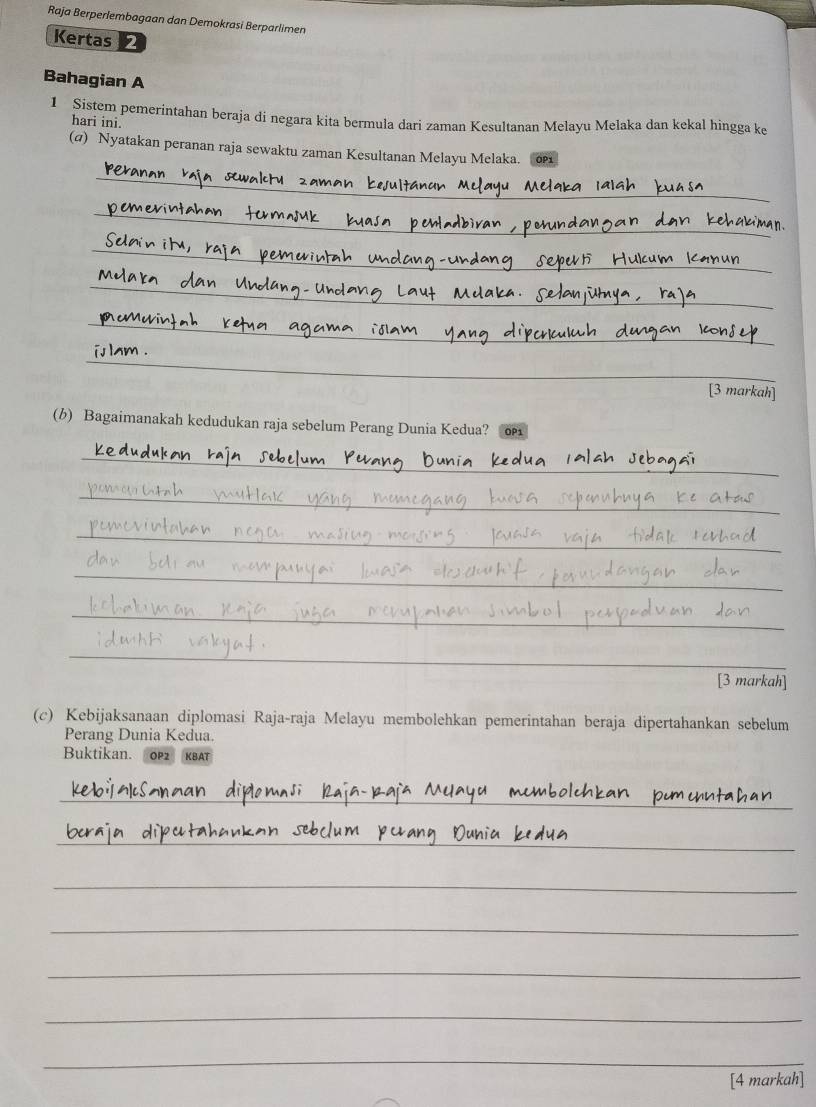 Raja Berperlembagaan dan Demokrasi Berparlimen
Kertas 2
Bahagian A
1 Sistem pemerintahan beraja di negara kita bermula dari zaman Kesultanan Melayu Melaka dan kekal hingga ke
hari ini.
(a) Nyatakan peranan raja sewaktu zaman Kesultanan Melayu Melaka. OP1
Peranan raja sewaktu zaman kesultanan Melayu Melaka ialah kuasa
pemerintahan termasuk kuasa pentadbiran, perundangan dan kehakiman.
Selain itu, raja pemerintah undang-undang seperti Hukum Kanun
Melaka dan Undang-Undang Laut Melaka. Selanjutnya, raja
memerintah ketua agama islam yang diperkukuh dengan konsep
islam.
[3 markah]
(b) Bagaimanakah kedudukan raja sebelum Perang Dunia Kedua? OP1
Kedudukan raja sebelum Perang Dunia Kedua ialah sebagai
pemerintah mutlak yang memegang kuasa sepenuhnya ke atas
pemerintahan negeri masing-masing. Kuasa raja tidak terhad
dan beliau mempunyai kuasa eksekutif, perundangan dan
kehakiman. Raja juga merupakan simbol perpaduan dan
identiti rakyat.
[3 markah]
(c) Kebijaksanaan diplomasi Raja-raja Melayu membolehkan pemerintahan beraja dipertahankan sebelum
Perang Dunia Kedua.
Buktikan. OP2 KBAT
Kebijaksanaan diplomasi Raja-Raja Melayu membolehkan pemerintahan
beraja dipertahankan sebelum perang Dunia kedua
[4 markah]